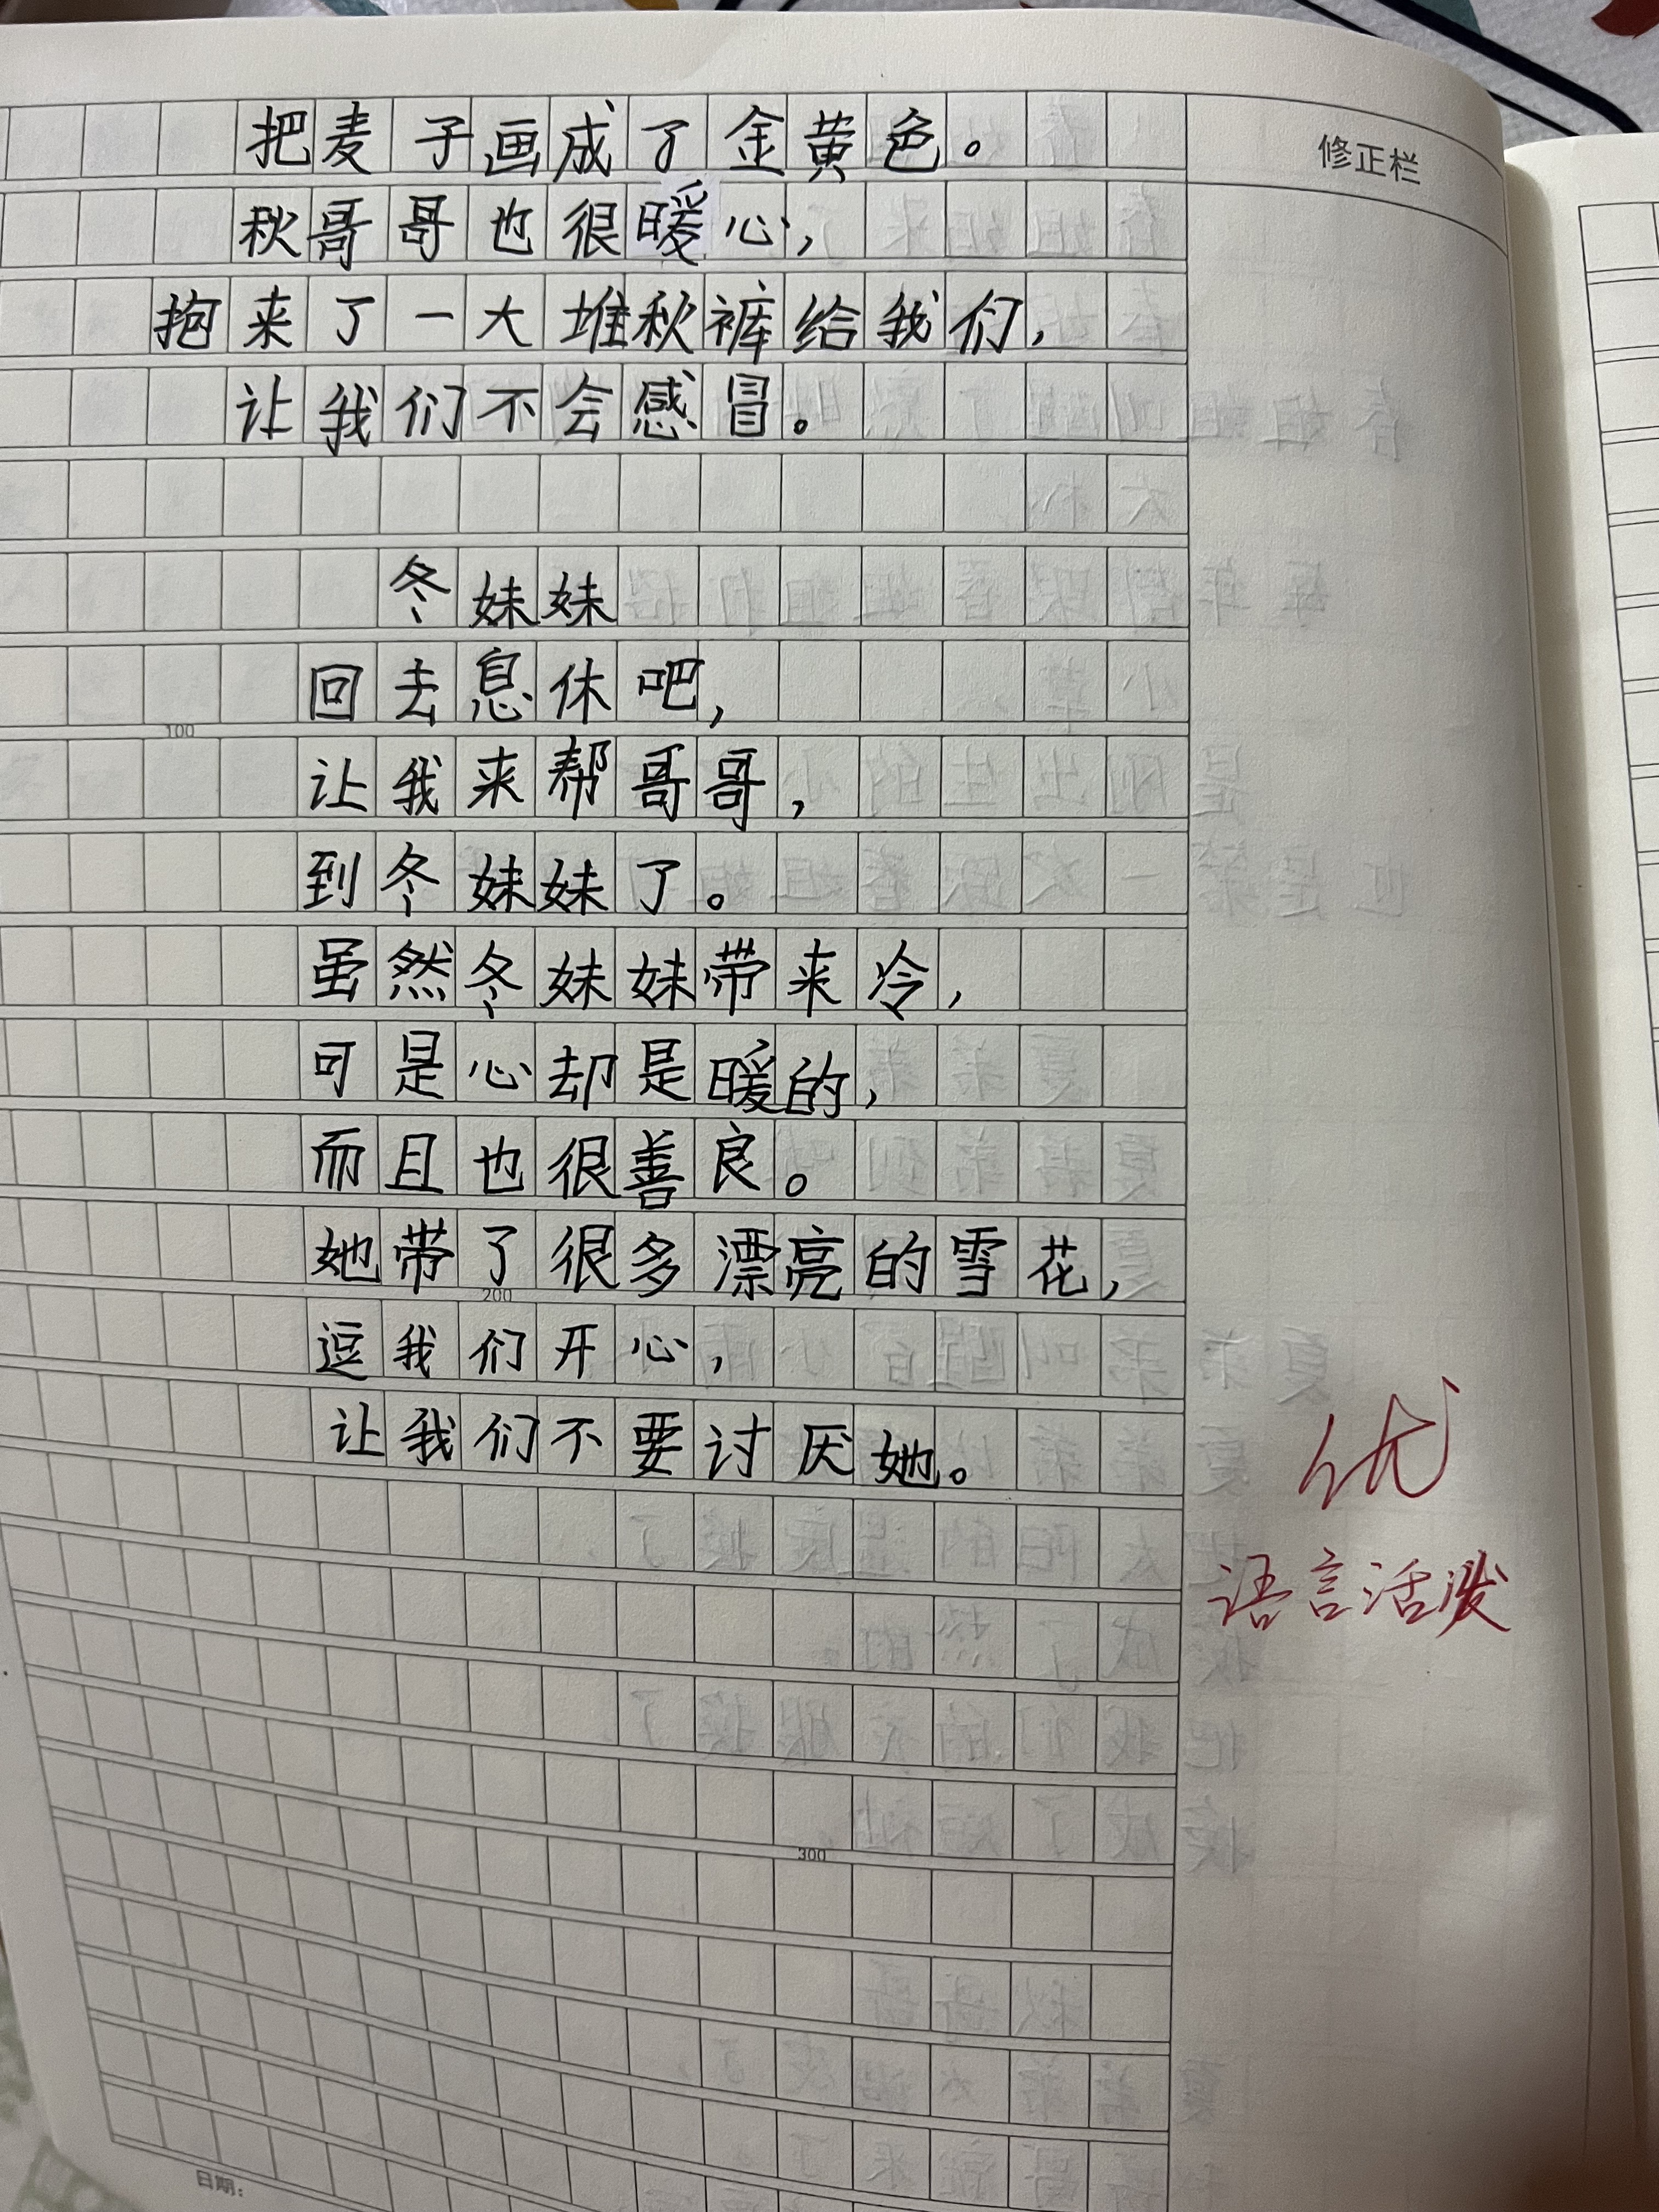 修正栏
把麦子画成了金黄色。
秋哥哥也很暖心，
抱来了一大堆秋裤给我们，
让我们不会感冒。
冬妹妹
回去息休吧，
100
让我来帮哥哥，
到冬妹妹了。
虽然冬妹妹带来冷，
可是心却是暖的，
而且也很善良。
她带了很多漂亮的雪花，
200
逗我们开心，
让我们不要讨厌她。
优
语言活泼
300
日期：